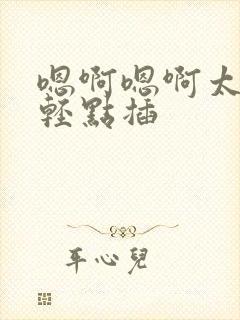 嗯啊嗯啊太
輕點插
平心兒